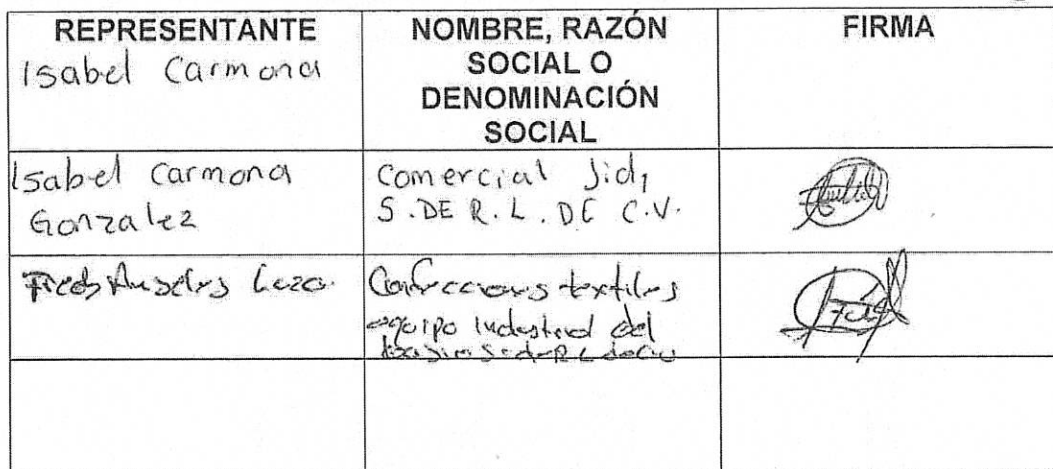 REPRESENTANTE
Isabel Carmona
NOMBRE, RAZÓN
SOCIAL O
DENOMINACIÓN
SOCIAL
FIRMA
Isabel Carmona
Gonzalez
Comercial Jidi
S.DE R.L. DE C.V.
Angeles
textiles
equipo Industrial del
S de RL de CV